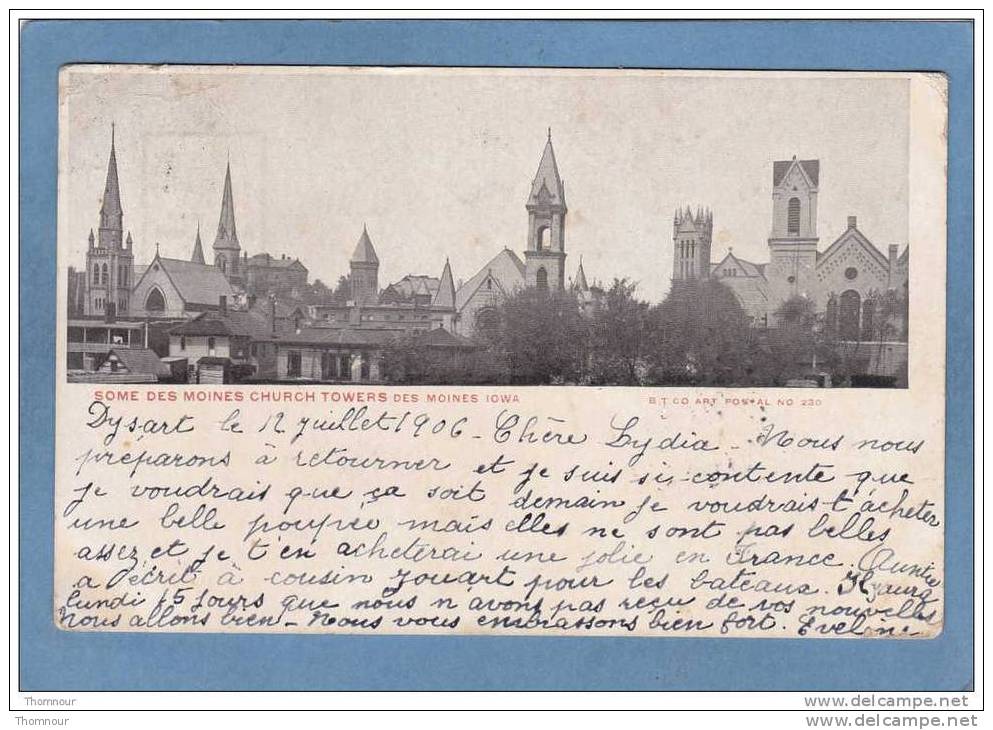 SOME DES MOINES CHURCH TOWERS DES MOINES IOWA
B.T.CO ART POSTAL NO 230
Dysart le 12 juillet 1906 - Chère Lydia - Nous nous
préparons à retourner et je suis si contente que
je voudrais que ça soit demain je voudrais t'acheter
une belle poupée mais elles ne sont pas belles
assez et je t'en acheterai une jolie en France. Auntie
a écrit à cousin Jouart pour les bateaux. Il y aura
lundi 15 jours que nous n'avons pas reçu de vos nouvelles
Nous allons bien - Nous vous embrassons bien fort. Eveline
Thornnour
Thornnour
www.delcampe.net
www.delcampe.net